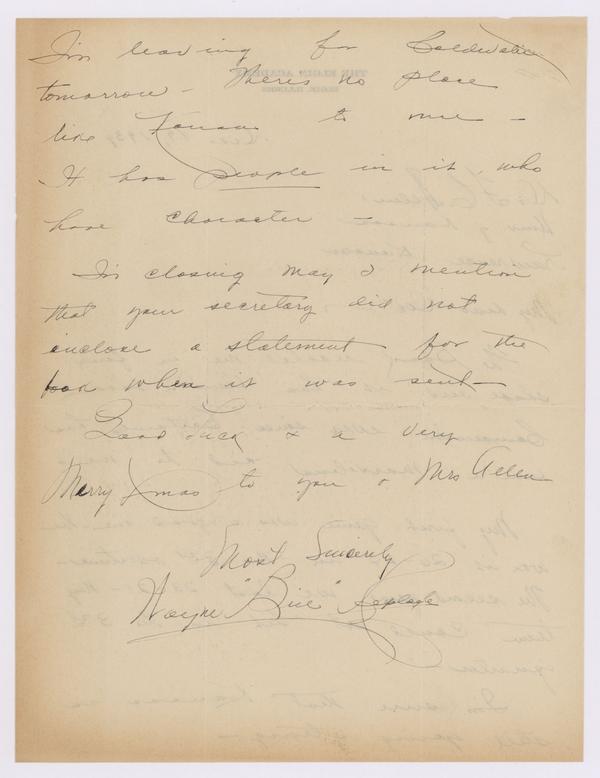 I'm leaving for Coldwater
tomorrow - Theres no place
like Kansas to me -
It has people in it, who
have character -
In closing may I mention
that your secretary did not
enclose a statement for the
book when it was sent -
Good luck & a very
Merry Xmas to you & Mrs Allen
Most Sincerely
Wayne "Bill" Replogle